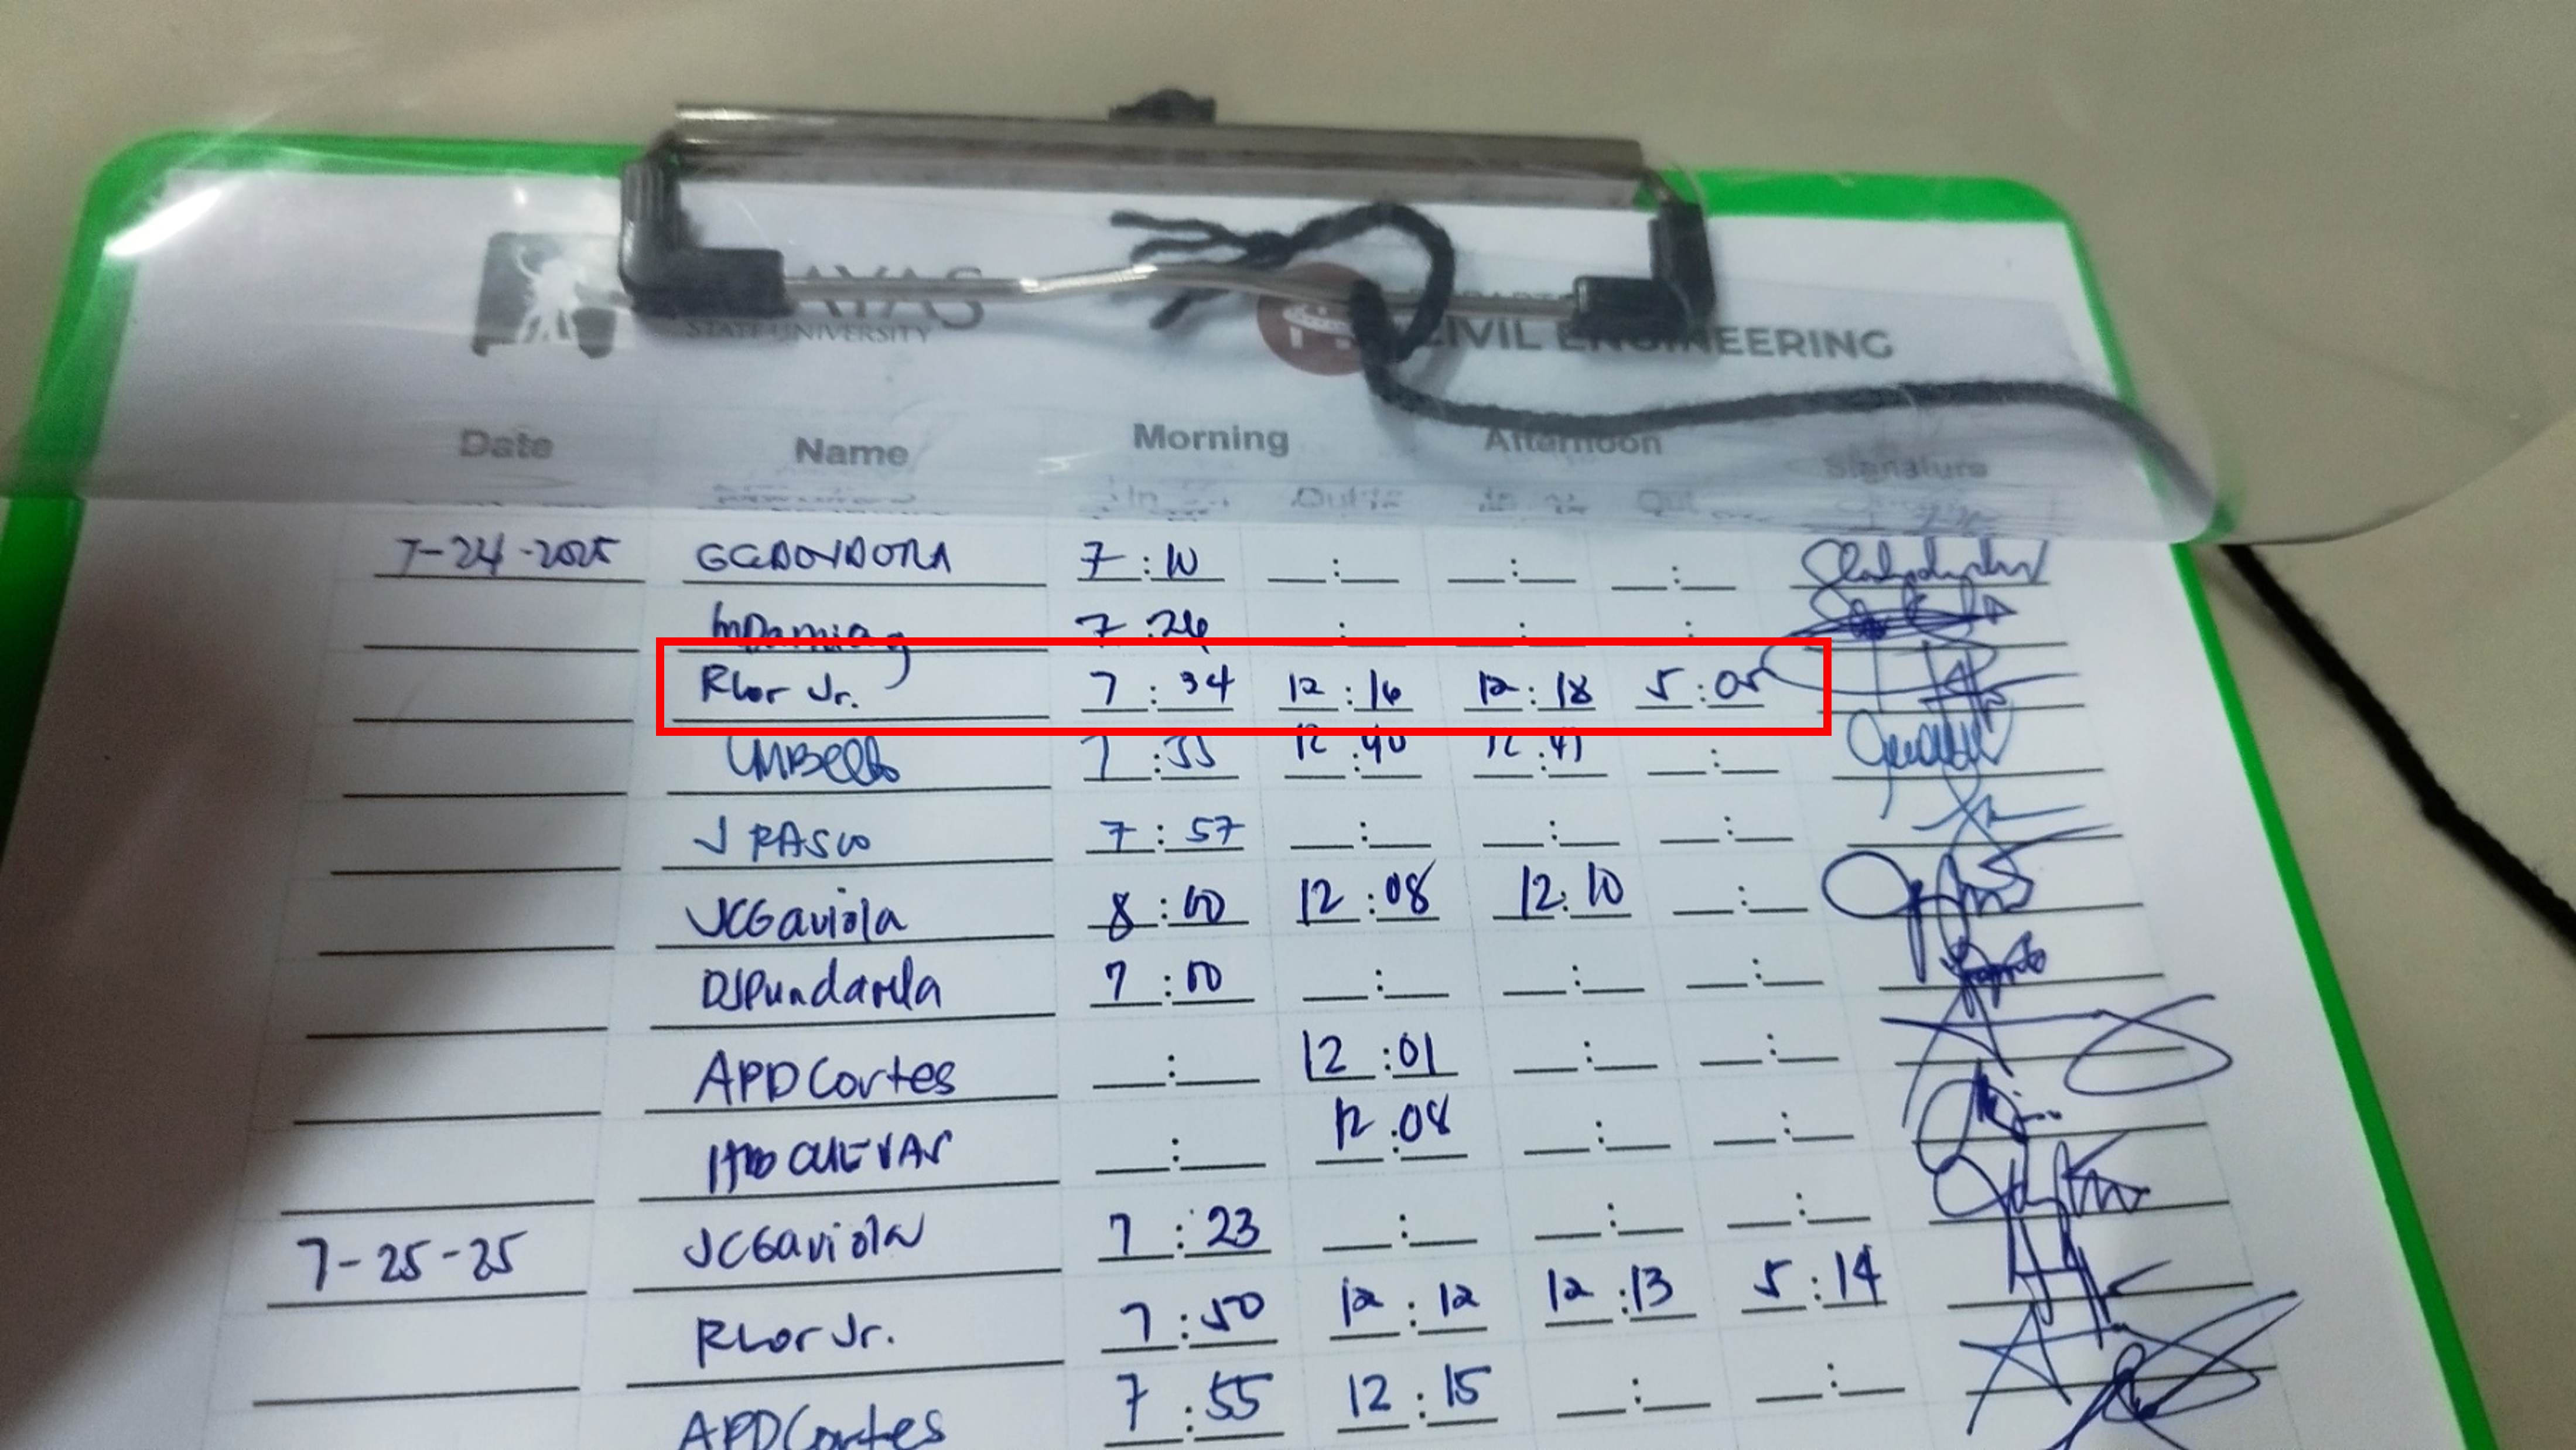 AYAS
STATE UNIVERSITY
CIVIL ENGINEERING
Date Name Morning Afternoon Signature
In Out In Out
7-24-2025 7:10
7:26
RLor Jr. 7:34 12:16 12:18 5:05
LMBello 7:55 12:40 12:41 :
J RASCO 7:57 : : :
JCGaviola 8:00 12:08 12:10 :
DJPundavela 7:00 : : :
APDCortes : 12:01 : :
CUEVAS : 12:08 : :
7-25-25 JCGaviola 7:23 : : :
RLor Jr. 7:50 12:12 12:13 5:14
APDCortes 7:55 12:15 : :